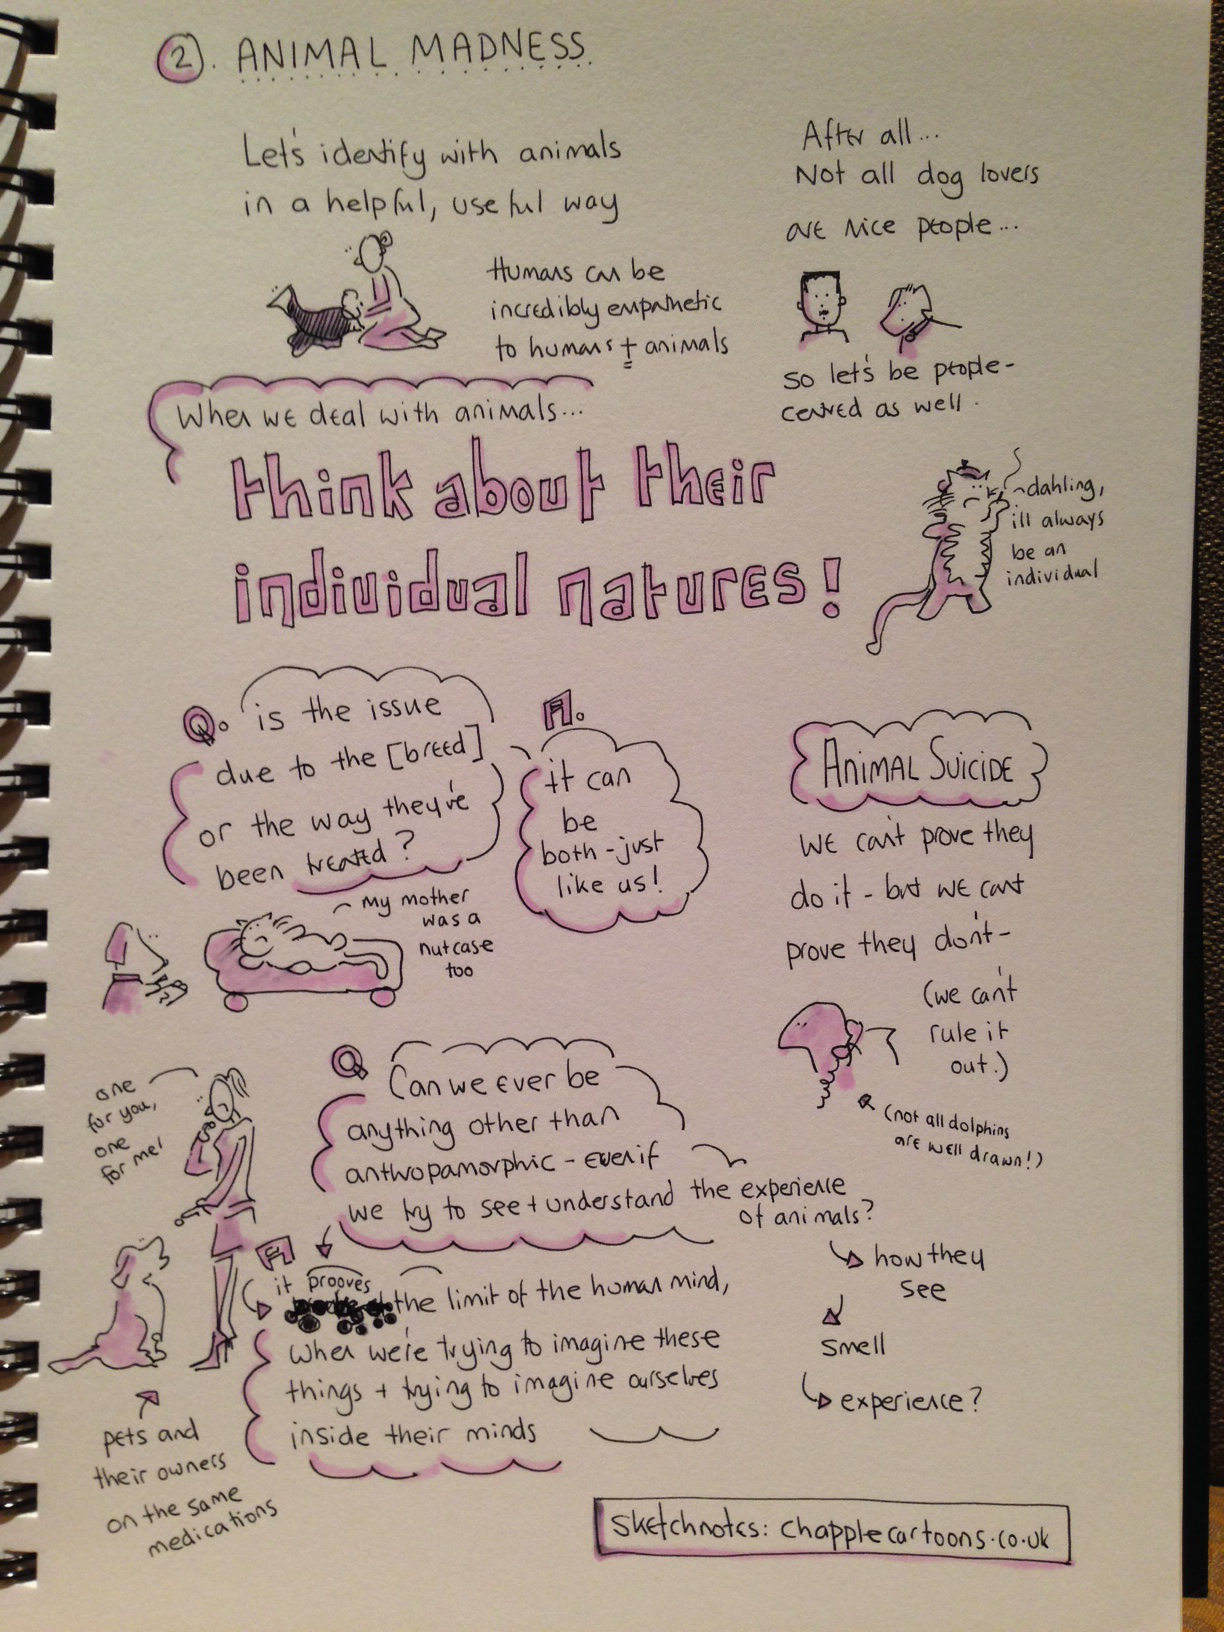 2. ANIMAL MADNESS
Let's identify with animals
in a helpful, useful way
Humans can be
incredibly empathetic
to humans + animals
After all...
Not all dog lovers
are nice people...
so let's be people-
centred as well.
When we deal with animals...
think about their
individual natures!
dahling,
ill always
be an
individual
Q. is the issue
due to the [breed]
or the way they've
been treated?
A.
it can
be
both - just
like us!
my mother
was a
nutcase
too
ANIMAL SUICIDE
we can't prove they
do it - but we can't
prove they don't -
(we can't
rule it
out.)
(not all dolphins
are well drawn!)
one
for you,
one
for me!
pets and
their owners
on the same
medications
Q Can we ever be
anything other than
anthropamorphic - even if
we try to see + understand the experience
of animals?
how they
see
smell
experience?
A
it prooves
the limit of the human mind,
when we're trying to imagine these
things + trying to imagine ourselves
inside their minds
sketchnotes: chapplecartoons.co.uk